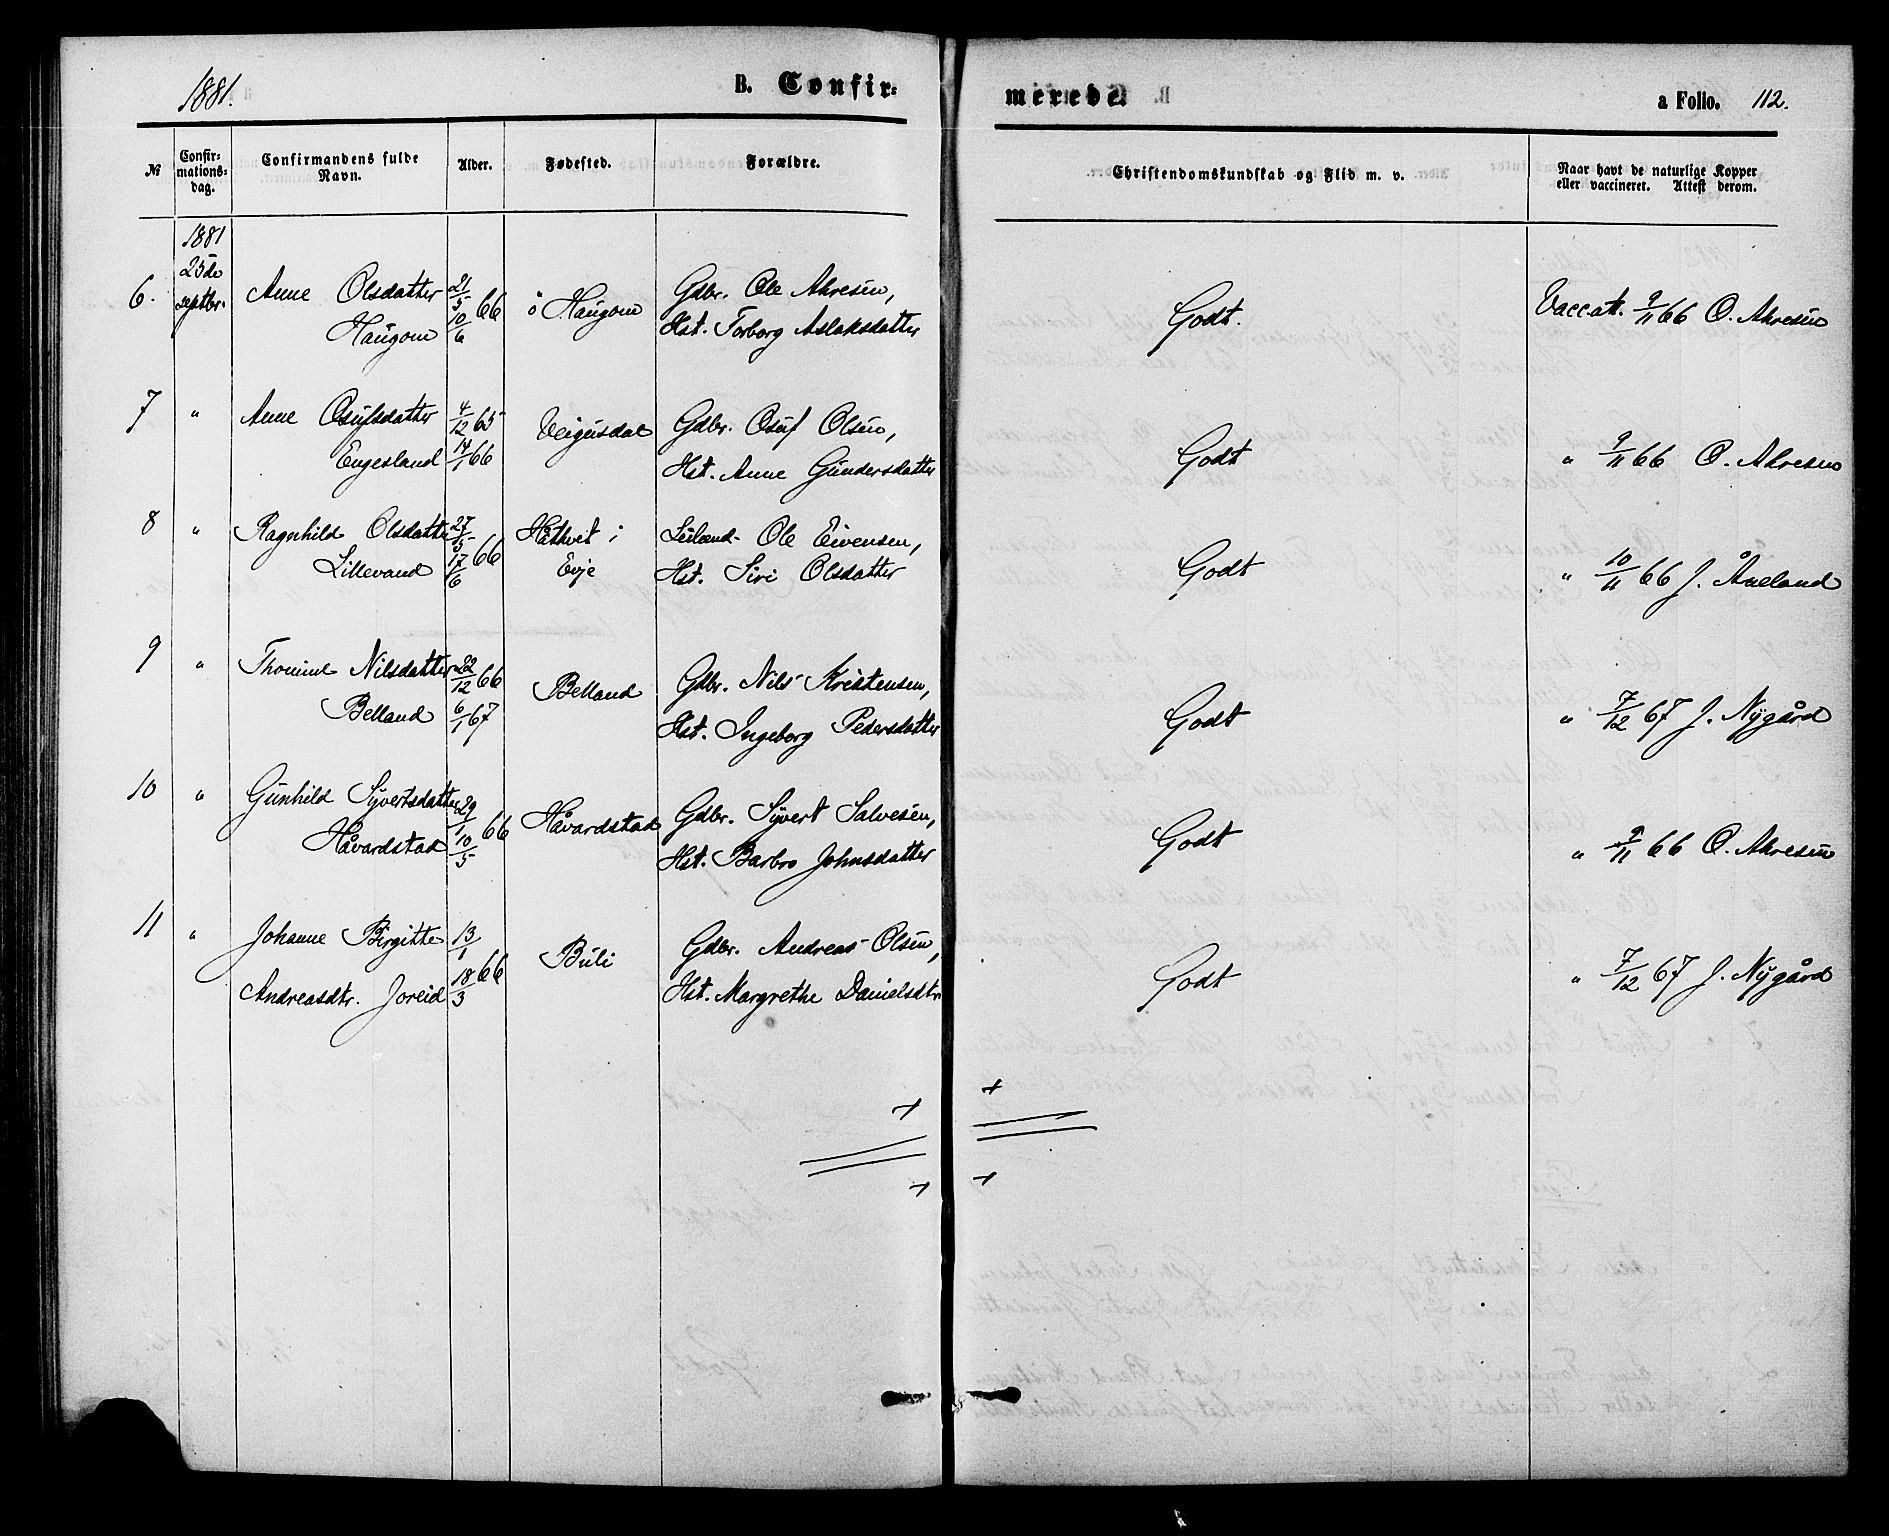 1881.
B. Confir-
merede.
a Folio. 112.
№
Confir-
mations-
dag.
Confirmandens fulde
Navn.
Alder.
Fødested.
Forældre.
Christendomskundskab og Flid m. v.
Naar havt de naturlige Kopper
eller vaccineret. Attest derom.
1881
25de
septbr.
6. Anne Olsdatter Haugom 21/5 10/6 66 ö Haugom Gdbr. Ole Akresen, Hst. Torborg Aslaksdatter Godt. Vaccatt. 9/11 66 O. Akresen
7 " Anne Osufsdatter Engesland 4/12 65 14/1 66 Veigusdal Gdbr. Osuf Olsen, Hst. Anne Gundersdatter Godt " 9/11 66 O. Akresen
8 " Ragnhild Olsdatter Lillevand 27/5 17/6 66 Håthvet i Evje Leilænd. Ole Eivensen, Hst. Siri Olsdatter Godt " 10/11 66 J. Åneland
9 " Thomine Nilsdatter Belland 22/12 66 6/1 67 Belland Gdbr. Nils Kristensen, Hst. Ingeborg Pedersdatter Godt " 7/12 67 J. Nygård
10 " Gunhild Syvertsdatter Håvardstad 29/1 10/5 66 Håvardstad Gdbr. Syvert Salvesen, Hst. Barbro Johnsdatter Godt " 9/11 66 O. Akresen
11 " Johanne Birgitte Andreasdtr. Joreid 13/1 18/3 66 Buli Gdbr. Andreas Olsen, Hst. Margrethe Danielsdtr Godt " 7/12 67 J. Nygård